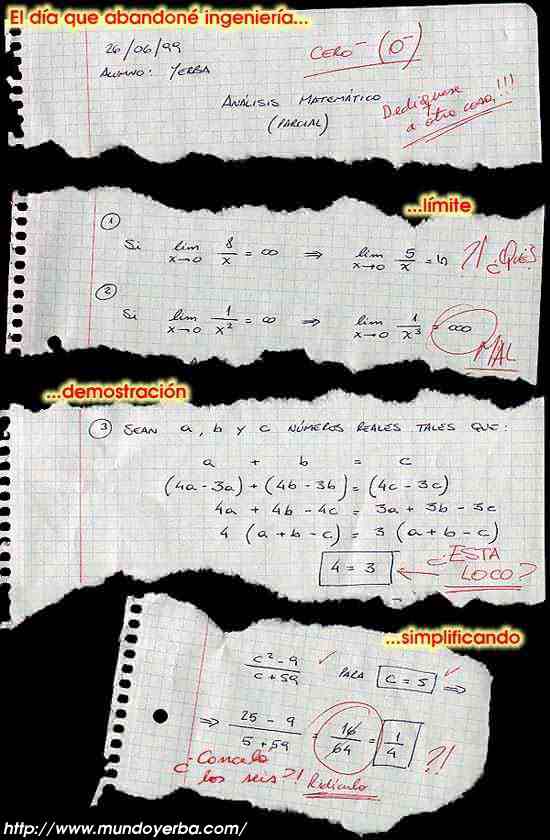 El día que abandoné ingeniería...
26/06/99
CERO⁻ (0⁻)
ALUMNO: YERBA
ANÁLISIS MATEMÁTICO
(PARCIAL)
Dedíquese
a otra cosa,!!!
...límite
①
Si lim x→0 8/x = ∞ ⇒ lim x→0 5/x = ம ?! ¿Qué?
②
Si lim x→0 1/x² = ∞ ⇒ lim x→0 1/x³ = ooo
MAL
...demostración
③ SEAN a, b y c NÚMEROS REALES TALES QUE:
a + b = c
(4a-3a)+(4b-3b)=(4c-3c)
4a + 4b - 4c = 3a + 3b - 3c
4 (a+b-c) = 3 (a+b-c)
4 = 3 ← ¿ESTA
LOCO?
...simplificando
c²-9/c+59 ✓ PARA c = 5 ✓ ⇒
⇒ 25-9/5+59 = 16/64 = 1/4 ?!
¿Cancela
los seis?! Ridículo
http://www.mundoyerba.com/